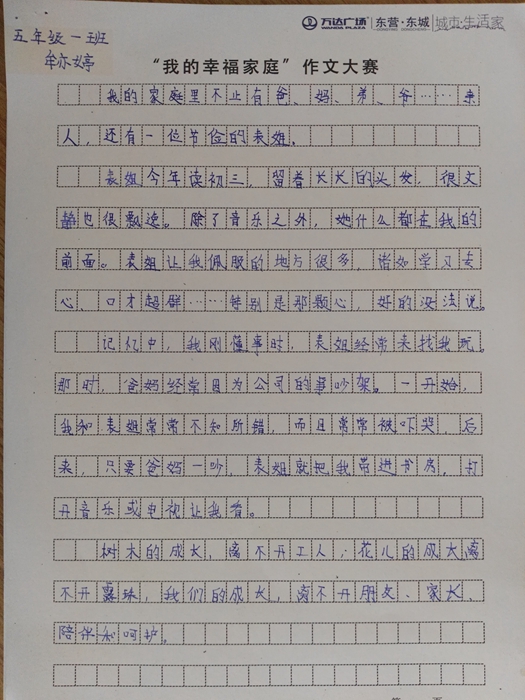 万达广场 WANDA PLAZA 东营·东城 DONGYING DONGCHENG 城市·生活家
五年级一班
牟亦婷
“我的幸福家庭”作文大赛
我的家庭里不止有爸、妈、弟、爷……亲
人，还有一位节俭的表姐。
表姐今年读初三，留着长长的头发，很文
静也很飘逸。除了音乐之外，她什么都在我的
前面。表姐让我佩服的地方很多，诸如学习专
心、口才超群……特别是那颗心，好的没法说。
记忆中，我刚懂事时，表姐经常来找我玩。
那时，爸妈经常因为公司的事吵架。一开始，
我和表姐常常不知所错，而且常常被吓哭，后
来，只要爸妈一吵，表姐就把我带进书房，打
开音乐或电视让我看。
树木的成长，离不开工人；花儿的成长离
不开露珠，我们的成长，离不开朋友、家长、
陪伴和呵护。